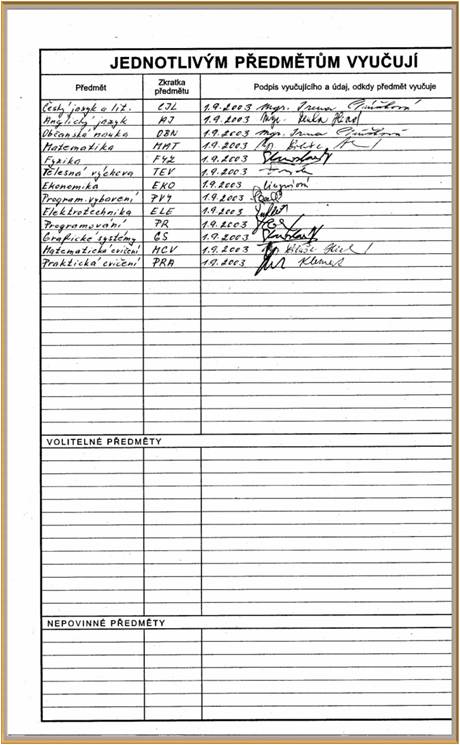 JEDNOTLIVÝM PŘEDMĚTŮM VYUČUJÍ
Předmět Zkratka předmětu Podpis vyučujícího a údaj, odkdy předmět vyučuje
Český jazyk a lit. CJL 1.9.2003 Mgr. Irena
Anglický jazyk AJ 1.9.2003 Mgr.
Občanská nauka OBN 1.9.2003 Mgr. Irena
Matematika MAT 1.9.2003
Fyzika FYZ 1.9.2003
Tělesná výchova TEV 1.9.2003
Ekonomika EKO 1.9.2003
Program. vybavení PVY 1.9.2003
Elektrotechnika ELE 1.9.2003
Programování PR 1.9.2003
Grafické systémy GS 1.9.2003
Matematická cvičení MCV 1.9.2003
Praktická cvičení PRA 1.9.2003
VOLITELNÉ PŘEDMĚTY
NEPOVINNÉ PŘEDMĚTY